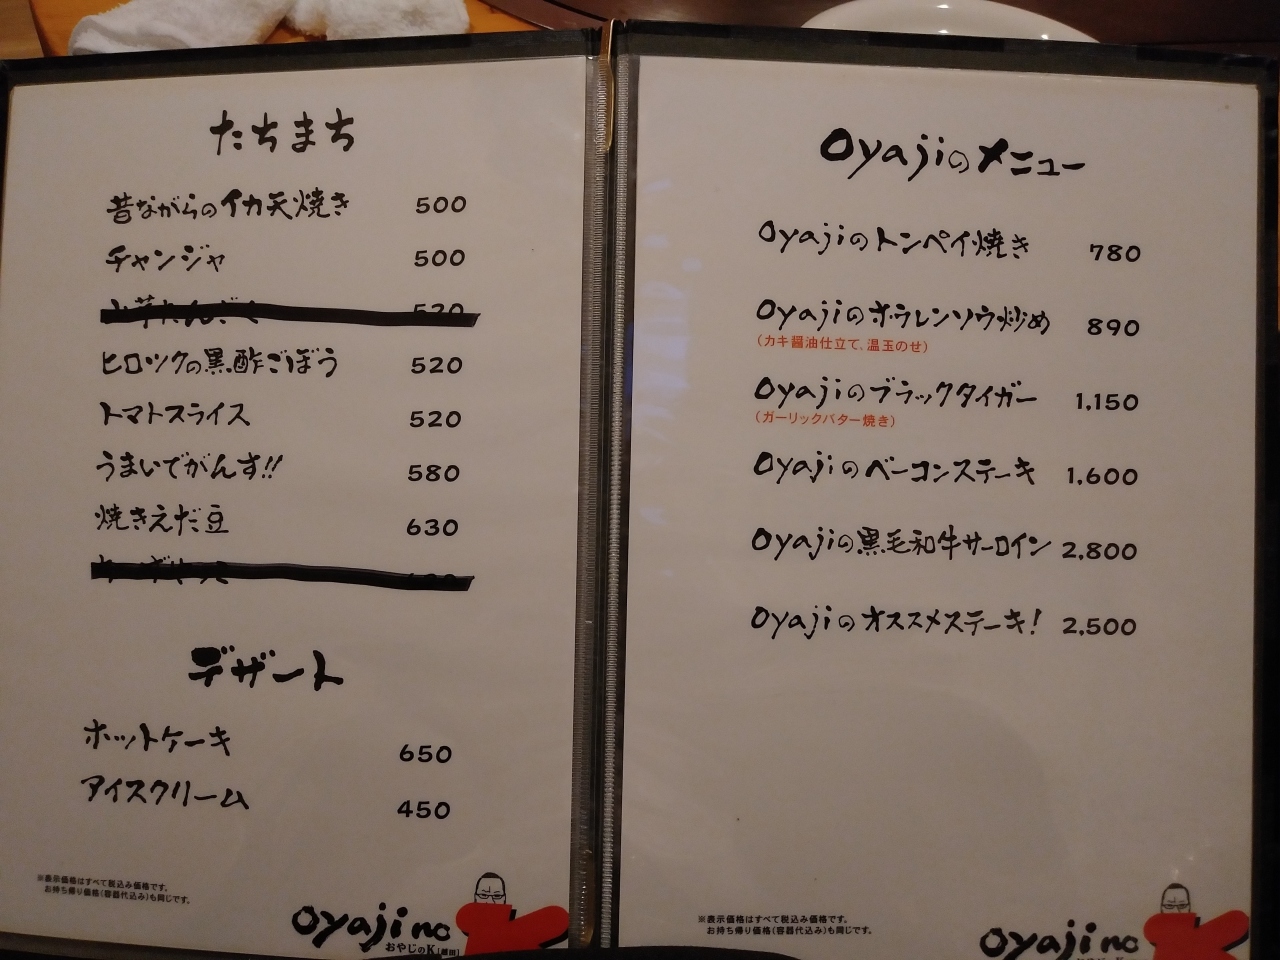 たちまち
昔ながらのイカ天焼き 500
チャンジャ 500
ヒロックの黒酢ごぼう 520
トマトスライス 520
うまいでがんす!! 580
焼きえだ豆 630
デザート
ホットケーキ 650
アイスクリーム 450
※表示価格はすべて税込み価格です。
お持ち帰り価格(容器代込み)も同じです。
oyaji no K
おやじのK
Oyajiのメニュー
Oyajiのトンペイ焼き 780
Oyajiのホウレンソウ炒め 890
(カキ醤油仕立て、温玉のせ)
Oyajiのブラックタイガー 1,150
(ガーリックバター焼き)
Oyajiのベーコンステーキ 1,600
Oyajiの黒毛和牛サーロイン 2,800
Oyajiのオススメステーキ! 2,500
※表示価格はすべて税込み価格です。
お持ち帰り価格(容器代込み)も同じです。
oyaji no K